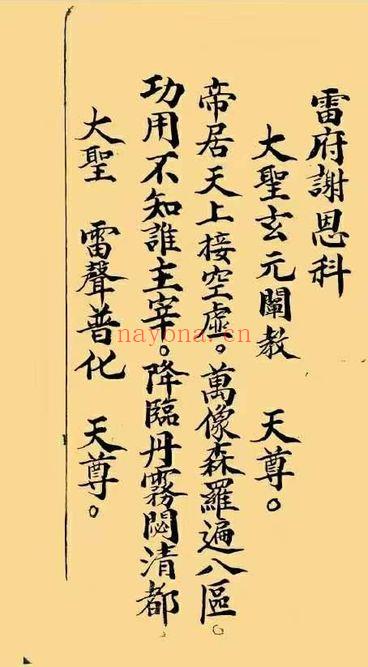 雷府謝恩科
大聖玄元闡教　天尊。
帝居天上接空虛。萬像森羅遍八區。
功用不知誰主宰。降臨丹霧閟清都
大聖　雷聲普化　天尊。
nayona.cn